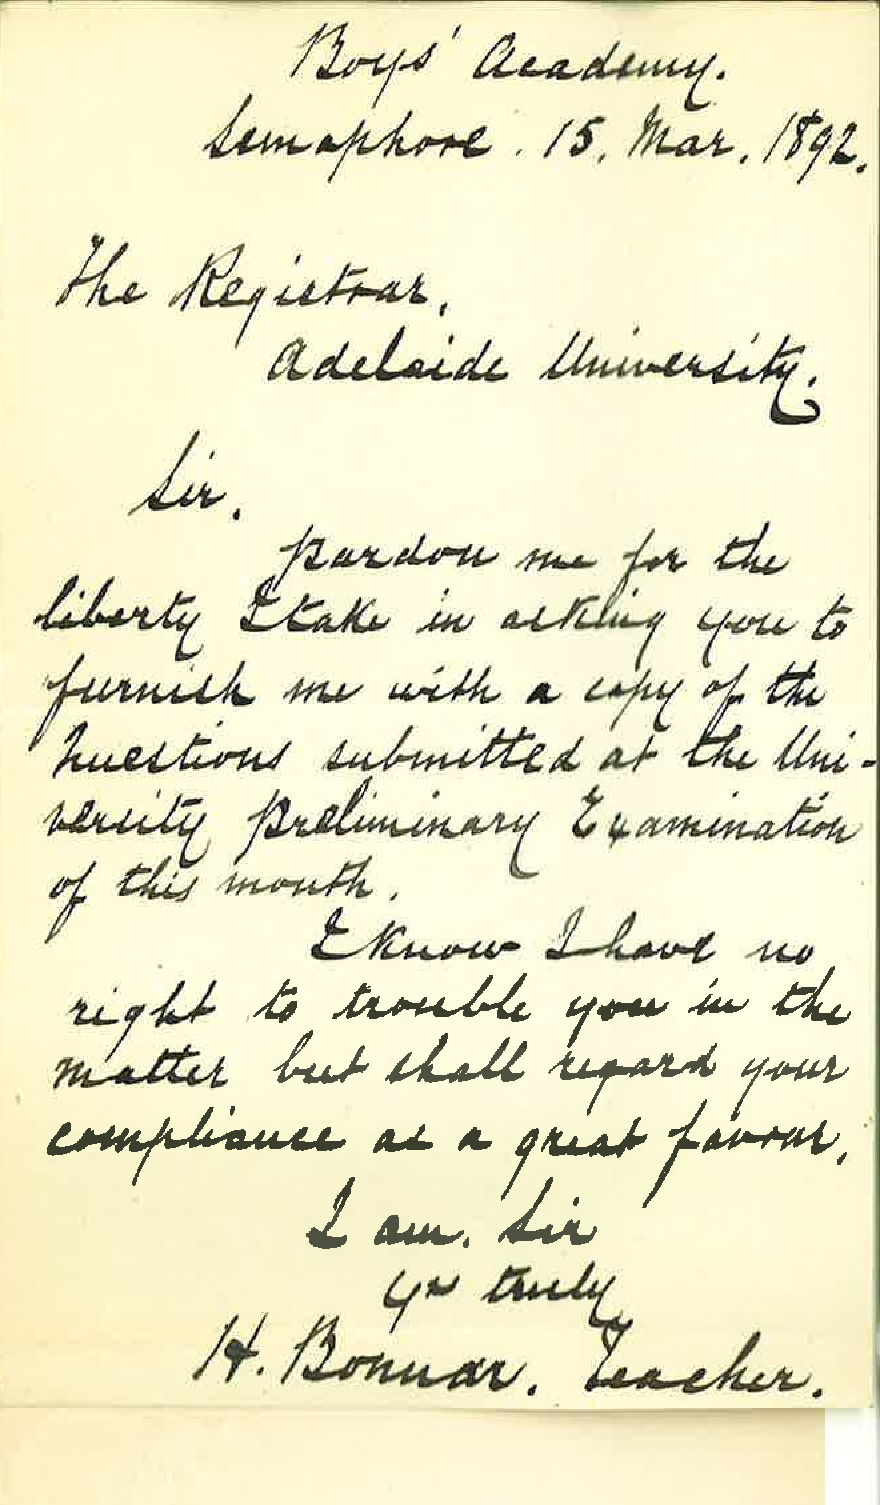 Boys' Academy.
Semaphore. 15. Mar. 1892.
The Registrar,
Adelaide University.
Sir.
Pardon me for the
liberty I take in asking you to
furnish me with a copy of the
Questions submitted at the Uni-
versity Preliminary Examination
of this month.
I know I have no
right to trouble you in the
matter but shall regard your
compliance as a great favour.
I am. Sir
Yrs truly
H. Bonnar. Teacher.